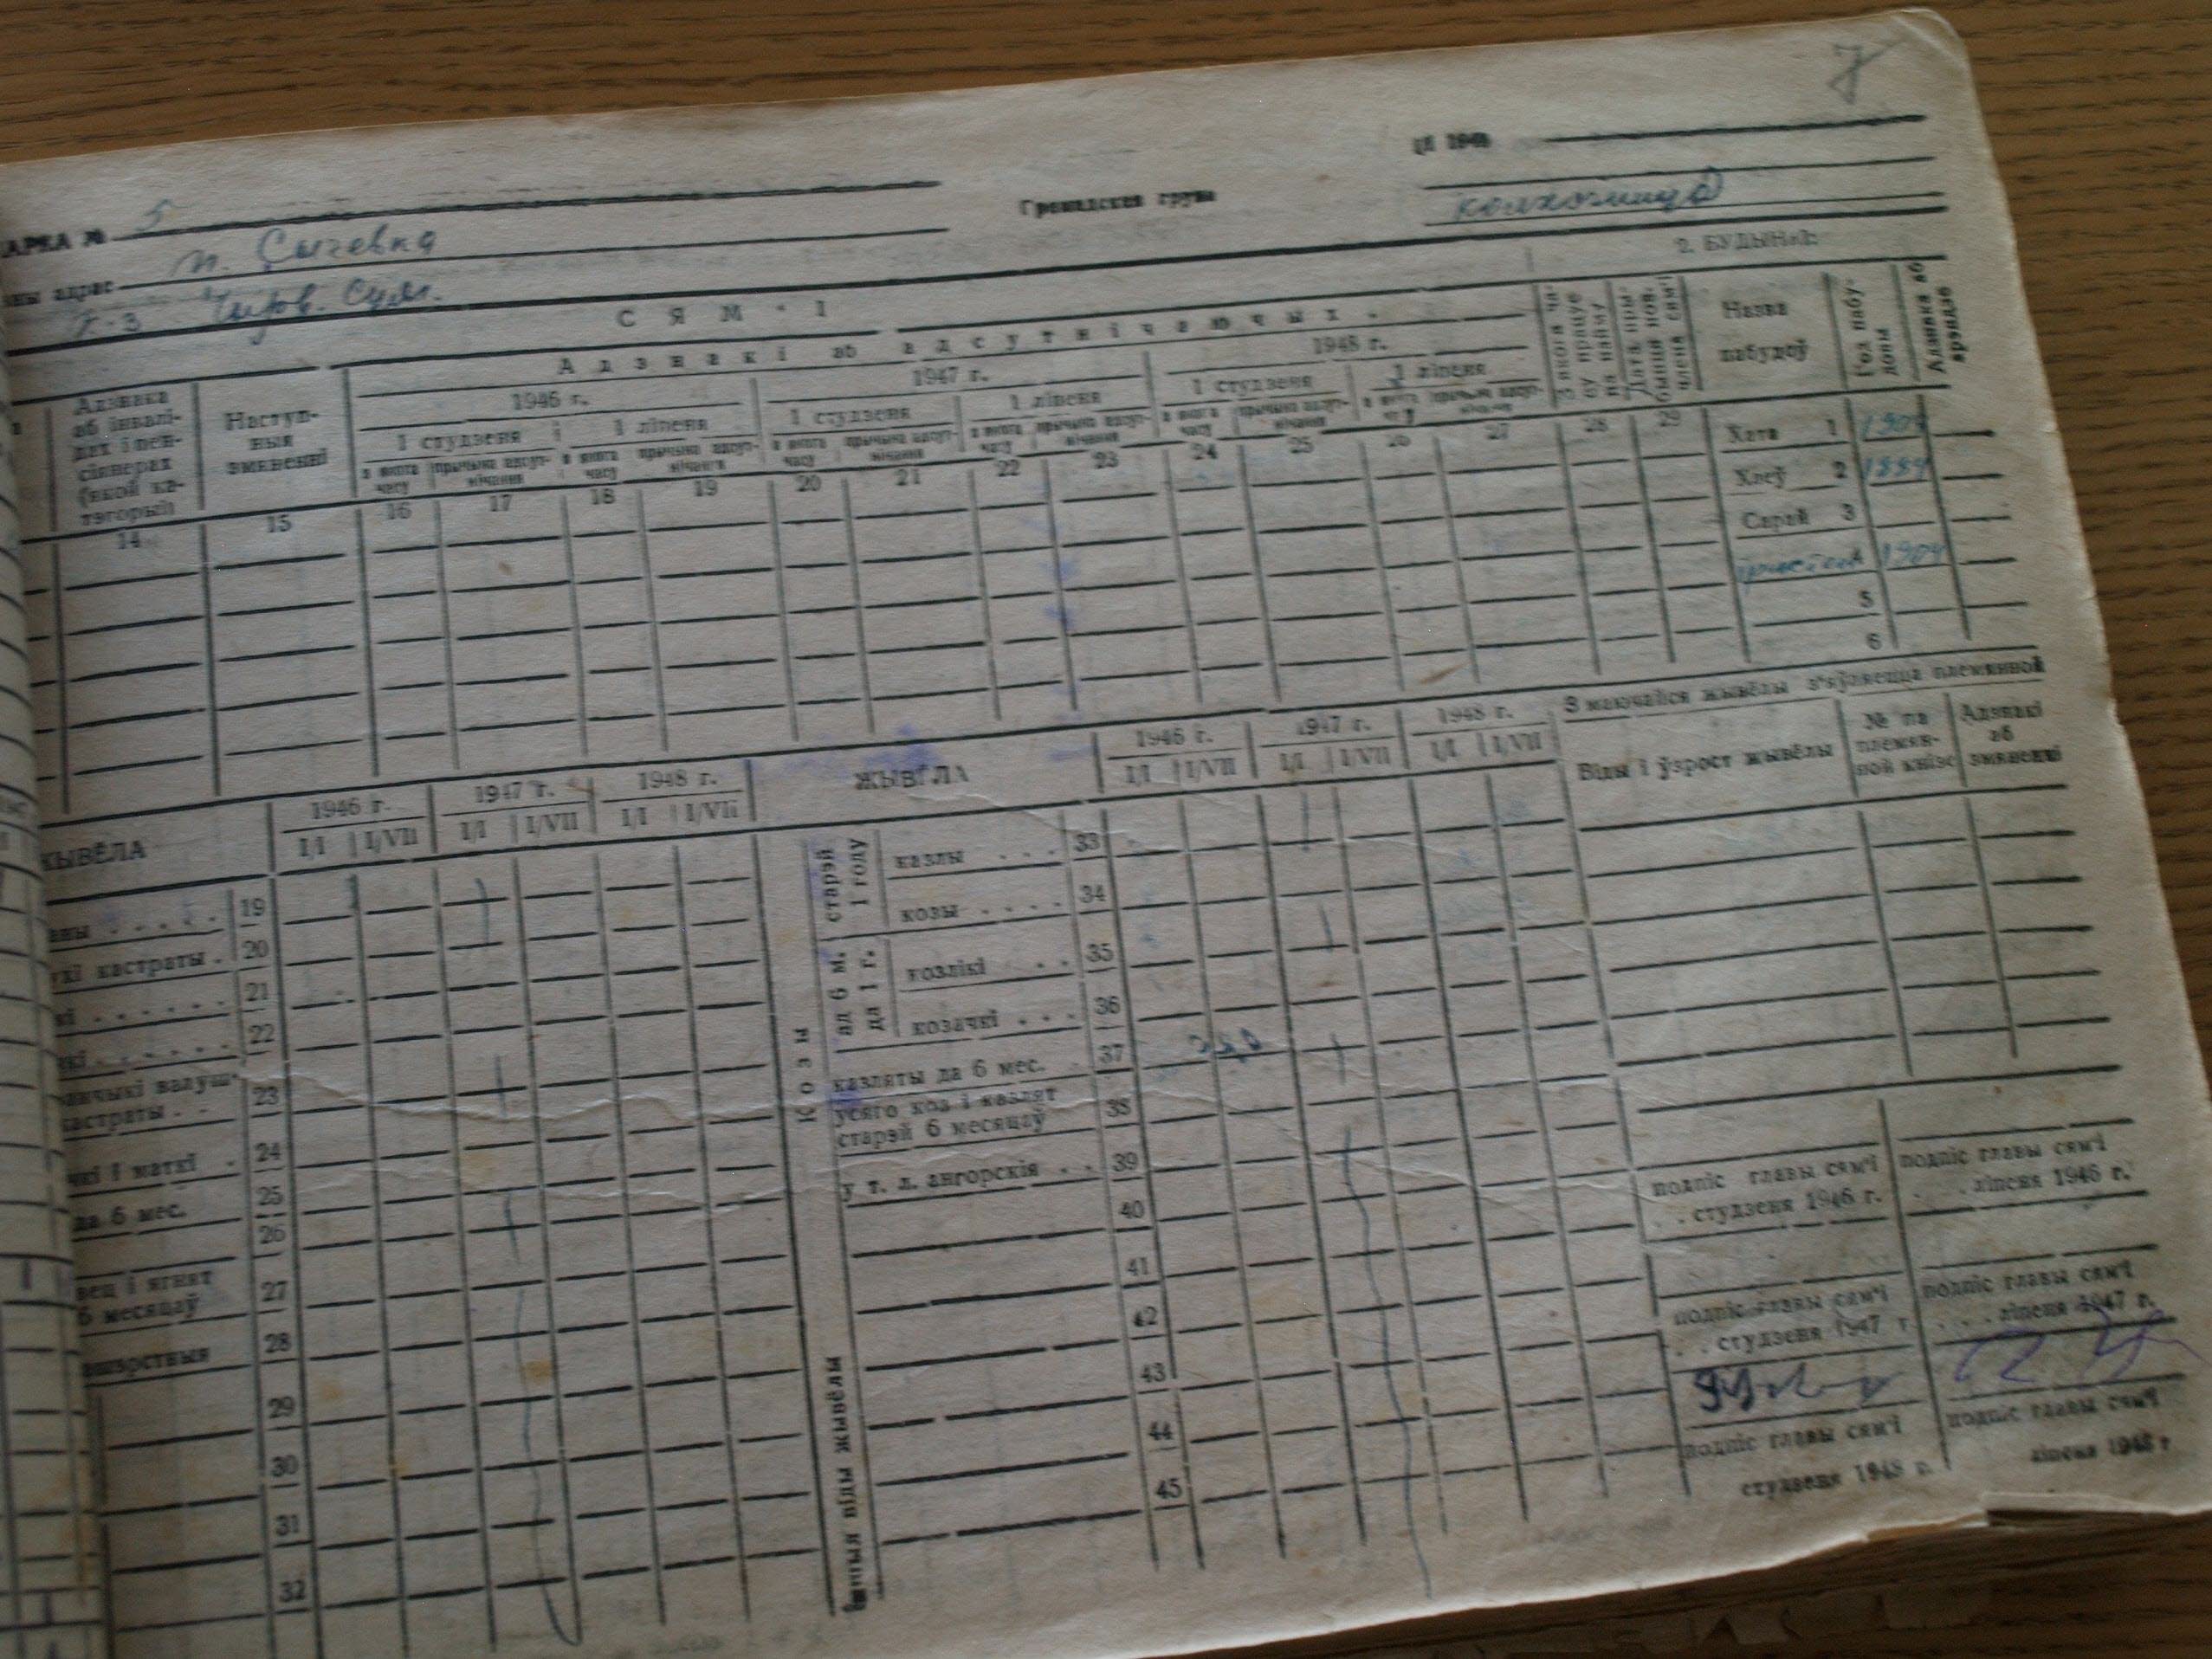 7
ЦІ 1948
АРКА № 5
Грамадская група
колхозница
ны адрас п. Сычевка
к-з Черв. Сцяг.
СЯМ'І
2. БУДЫНКІ:
Адзнакі аб адсутнічаючых.
Адзнака аб інвалідах і пенсіянерах (якой катэгорыі)
Наступныя змяненні
1946 г.
1947 г.
1948 г.
1 студзеня
1 ліпеня
1 студзеня
1 ліпеня
1 студзеня
1 ліпеня
з якога часу
прычына адсутнічання
з якога часу
прычына адсутнічання
з якога часу
прычына адсутнічання
з якога часу
прычына адсутнічання
з якога часу
прычына адсутнічання
з якога часу
прычына адсутнічання
З якога часу працуе па найму
Дата прыбыцця новага члена сям'і
Назва пабудоў
Год пабудовы
Адзнака аб арэндзе
14 15 16 17 18 19 20 21 22 23 24 25 26 27 28 29
Хата 1 1904
Хлеў 2 1884
Сарай 3
1904
5
6
ЖЫВЁЛА
1946 г.
1947 г.
1948 г.
І/І І/VII І/І І/VII І/І І/VII
ЖЫВЁЛА
1946 г.
1947 г.
1948 г.
І/І І/VII І/І І/VII І/І І/VII
З маючайся жывёлы з'яўляецца племянной
Віды і ўзрост жывёлы
№ па племянной кнізе
Адзнакі аб змяненні
19
кастраты . 20
21
22
валуш-
кастраты . . 23
чкі і маткі . 24
да 6 мес. 25
26
вец і ягнят
6 месяцаў 27
28
29
30
31
32
Козы
старэй 1 году
казлы . . . 33
козы . . . . 34
ад 6 м. да 1 г.
козлікі . . 35
козачкі . . . 36
казляты да 6 мес. . 37
усяго коз і казлят
старэй 6 месяцаў 38
у т. л. ангорскія . . 39
Іншыя віды жывёлы
40
41
42
43
44
45
подпіс главы сям'і
. . студзеня 1946 г.
подпіс главы сям'і
. . . ліпеня 1946 г.
подпіс главы сям'і
. . студзеня 1947 г
подпіс главы сям'і
. . . ліпеня 1947 г.
подпіс главы сям'і
студзеня 1948 г.
подпіс главы сям'і
ліпеня 1948 г